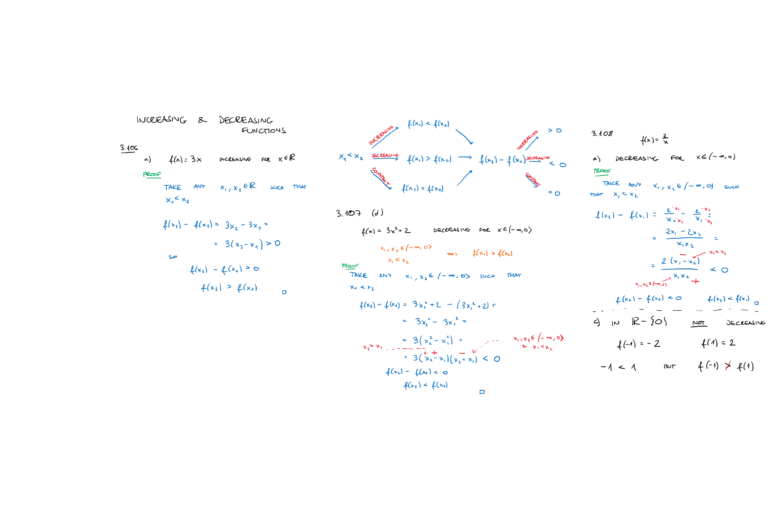 INCREASING & DECREASING
FUNCTIONS
3.106
a) f(x) = 3x INCREASING FOR x∈ℝ
PROOF
TAKE ANY x₁, x₂∈ℝ SUCH THAT
x₁ < x₂
f(x₂) - f(x₁) = 3x₂ - 3x₁ =
= 3(x₂ - x₁) > 0
SO
f(x₂) - f(x₁) > 0
f(x₂) > f(x₁) □
x₁ < x₂
INCREASING f(x₁) < f(x₂)
DECREASING f(x₁) > f(x₂)
CONSTANT f(x₁) = f(x₂)
f(x₂) - f(x₁)
INCREASING > 0
DECREASING < 0
CONSTANT = 0
3.107 (d)
f(x) = 3x² + 2 DECREASING FOR x∈(-∞, 0)
x₁, x₂ ∈ (-∞, 0)
x₁ < x₂
f(x₁) > f(x₂)
PROOF
TAKE ANY x₁, x₂ ∈ (-∞, 0) SUCH THAT
x₁ < x₂
f(x₂) - f(x₁) = 3x₂² + 2 - (3x₁² + 2) =
= 3x₂² - 3x₁² =
= 3(x₂² - x₁²) =
x₂ > x₁
x₁, x₂ ∈ (-∞, 0)
+ x₁ < x₂
+ -
= 3(x₂ - x₁)(x₂ + x₁) < 0
f(x₂) - f(x₁) < 0
f(x₂) < f(x₁)
□
3.108
f(x) = 2/x
a) DECREASING FOR x∈(-∞, 0)
PROOF
TAKE ANY x₁, x₂ ∈ (-∞, 0) SUCH
THAT x₁ < x₂
f(x₂) - f(x₁) = 2·x₁/x₂·x₁ - 2·x₂/x₁·x₂ =
= 2x₁ - 2x₂/x₁x₂ =
= 2(x₁ - x₂)/x₁x₂ < 0
-
x₁ < x₂
x₁, x₂ ∈ (-∞, 0) +
f(x₂) - f(x₁) < 0 f(x₂) < f(x₁) □
c) IN ℝ-{0} NOT DECREASING
f(-1) = -2 f(1) = 2
-1 < 1 BUT f(-1) ≯ f(1)